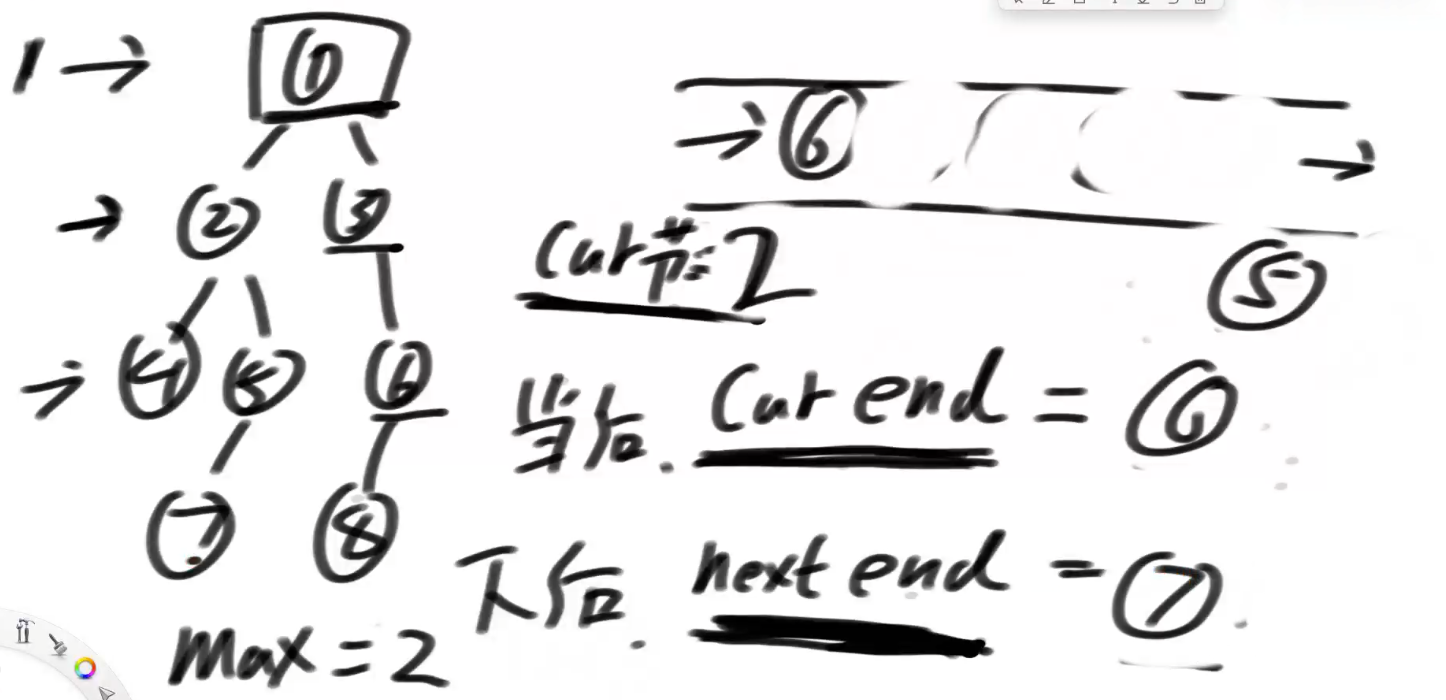 1 → ①
→ ② ③
→ ④ ⑤ ⑥
⑦ ⑧
max = 2
→ ⑥ →
⑤
cur节: 2
当后. Cur end = ⑥
下后. next end = ⑦